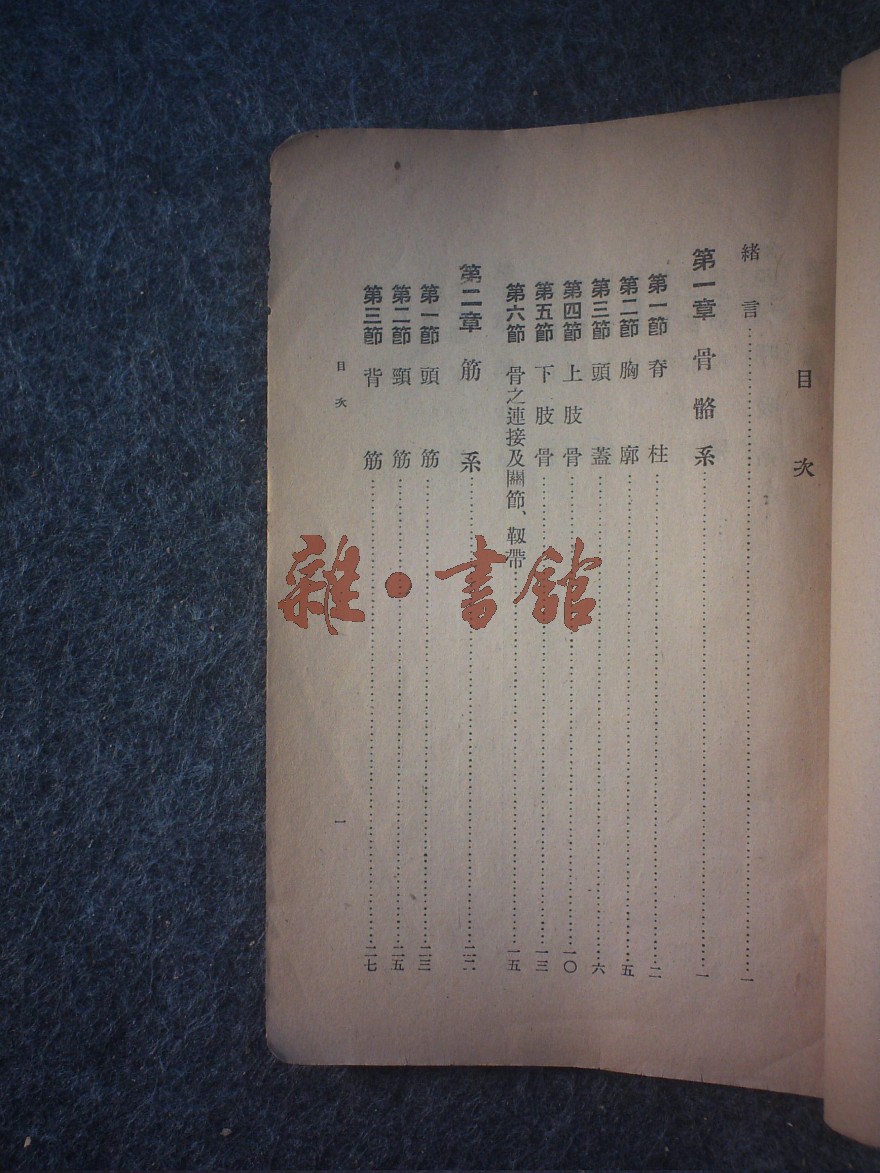 目次
緒言…………一
第一章 骨骼系…………一
第一節 脊柱…………二
第二節 胸廓…………五
第三節 頭蓋…………六
第四節 上肢骨…………一〇
第五節 下肢骨…………一三
第六節 骨之連接及關節、靱帶…………一五
第二章 筋系…………二二
第一節 頭筋…………二三
第二節 頸筋…………二五
第三節 背筋…………二七
目次
一
雜·書館